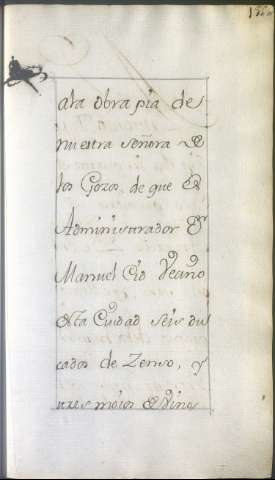 ala obra pia de
nuestra señora de
los Gozos, de que es
Administrador Dn
Manuel Cid Vecino
desta Ciudad seis du
cados de Zenso, y
tres moios de vino